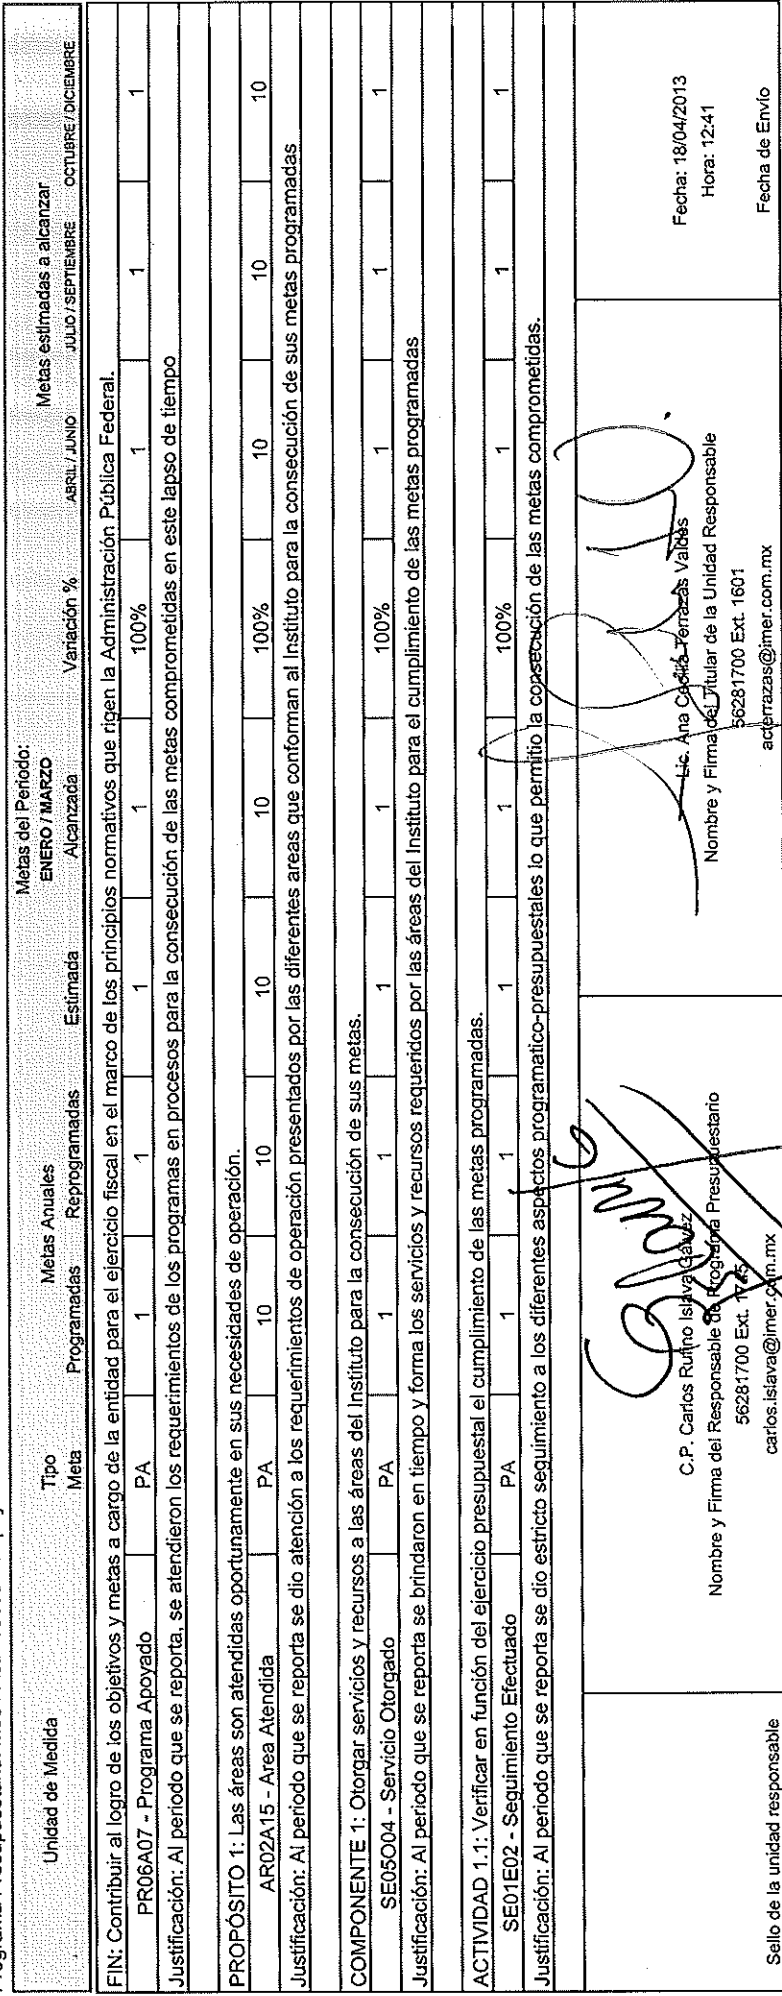 Metas del Periodo:
Unidad de Medida Tipo Meta Metas Anuales ENERO / MARZO Metas estimadas a alcanzar
Programadas Reprogramadas Estimada Alcanzada Variación % ABRIL / JUNIO JULIO / SEPTIEMBRE OCTUBRE / DICIEMBRE
FIN: Contribuir al logro de los objetivos y metas a cargo de la entidad para el ejercicio fiscal en el marco de los principios normativos que rigen la Administración Pública Federal.
PR06A07 - Programa Apoyado PA 1 1 1 1 100% 1 1 1
Justificación: Al periodo que se reporta, se atendieron los requerimientos de los programas en procesos para la consecución de las metas comprometidas en este lapso de tiempo
PROPÓSITO 1: Las áreas son atendidas oportunamente en sus necesidades de operación.
AR02A15 - Area Atendida PA 10 10 10 10 100% 10 10 10
Justificación: Al periodo que se reporta se dio atención a los requerimientos de operación presentados por las diferentes areas que conforman al Instituto para la consecución de sus metas programadas
COMPONENTE 1: Otorgar servicios y recursos a las áreas del Instituto para la consecución de sus metas.
SE05O04 - Servicio Otorgado PA 1 1 1 1 100% 1 1 1
Justificación: Al periodo que se reporta se brindaron en tiempo y forma los servicios y recursos requeridos por las áreas del Instituto para el cumplimiento de las metas programadas
ACTIVIDAD 1.1: Verificar en función del ejercicio presupuestal el cumplimiento de las metas programadas.
SE01E02 - Seguimiento Efectuado PA 1 1 1 1 100% 1 1 1
Justificación: Al periodo que se reporta se dio estricto seguimiento a los diferentes aspectos programatico-presupuestales lo que permitio la consecución de las metas comprometidas.
Sello de la unidad responsable
C.P. Carlos Rufino Islava Galvez
Nombre y Firma del Responsable de Programa Presupuestario
56281700 Ext. 1745
carlos.islava@imer.com.mx
Lic. Ana Cecilia Terrazas Valdes
Nombre y Firma del Titular de la Unidad Responsable
56281700 Ext. 1601
acterrazas@imer.com.mx
Fecha: 18/04/2013
Hora: 12:41
Fecha de Envío